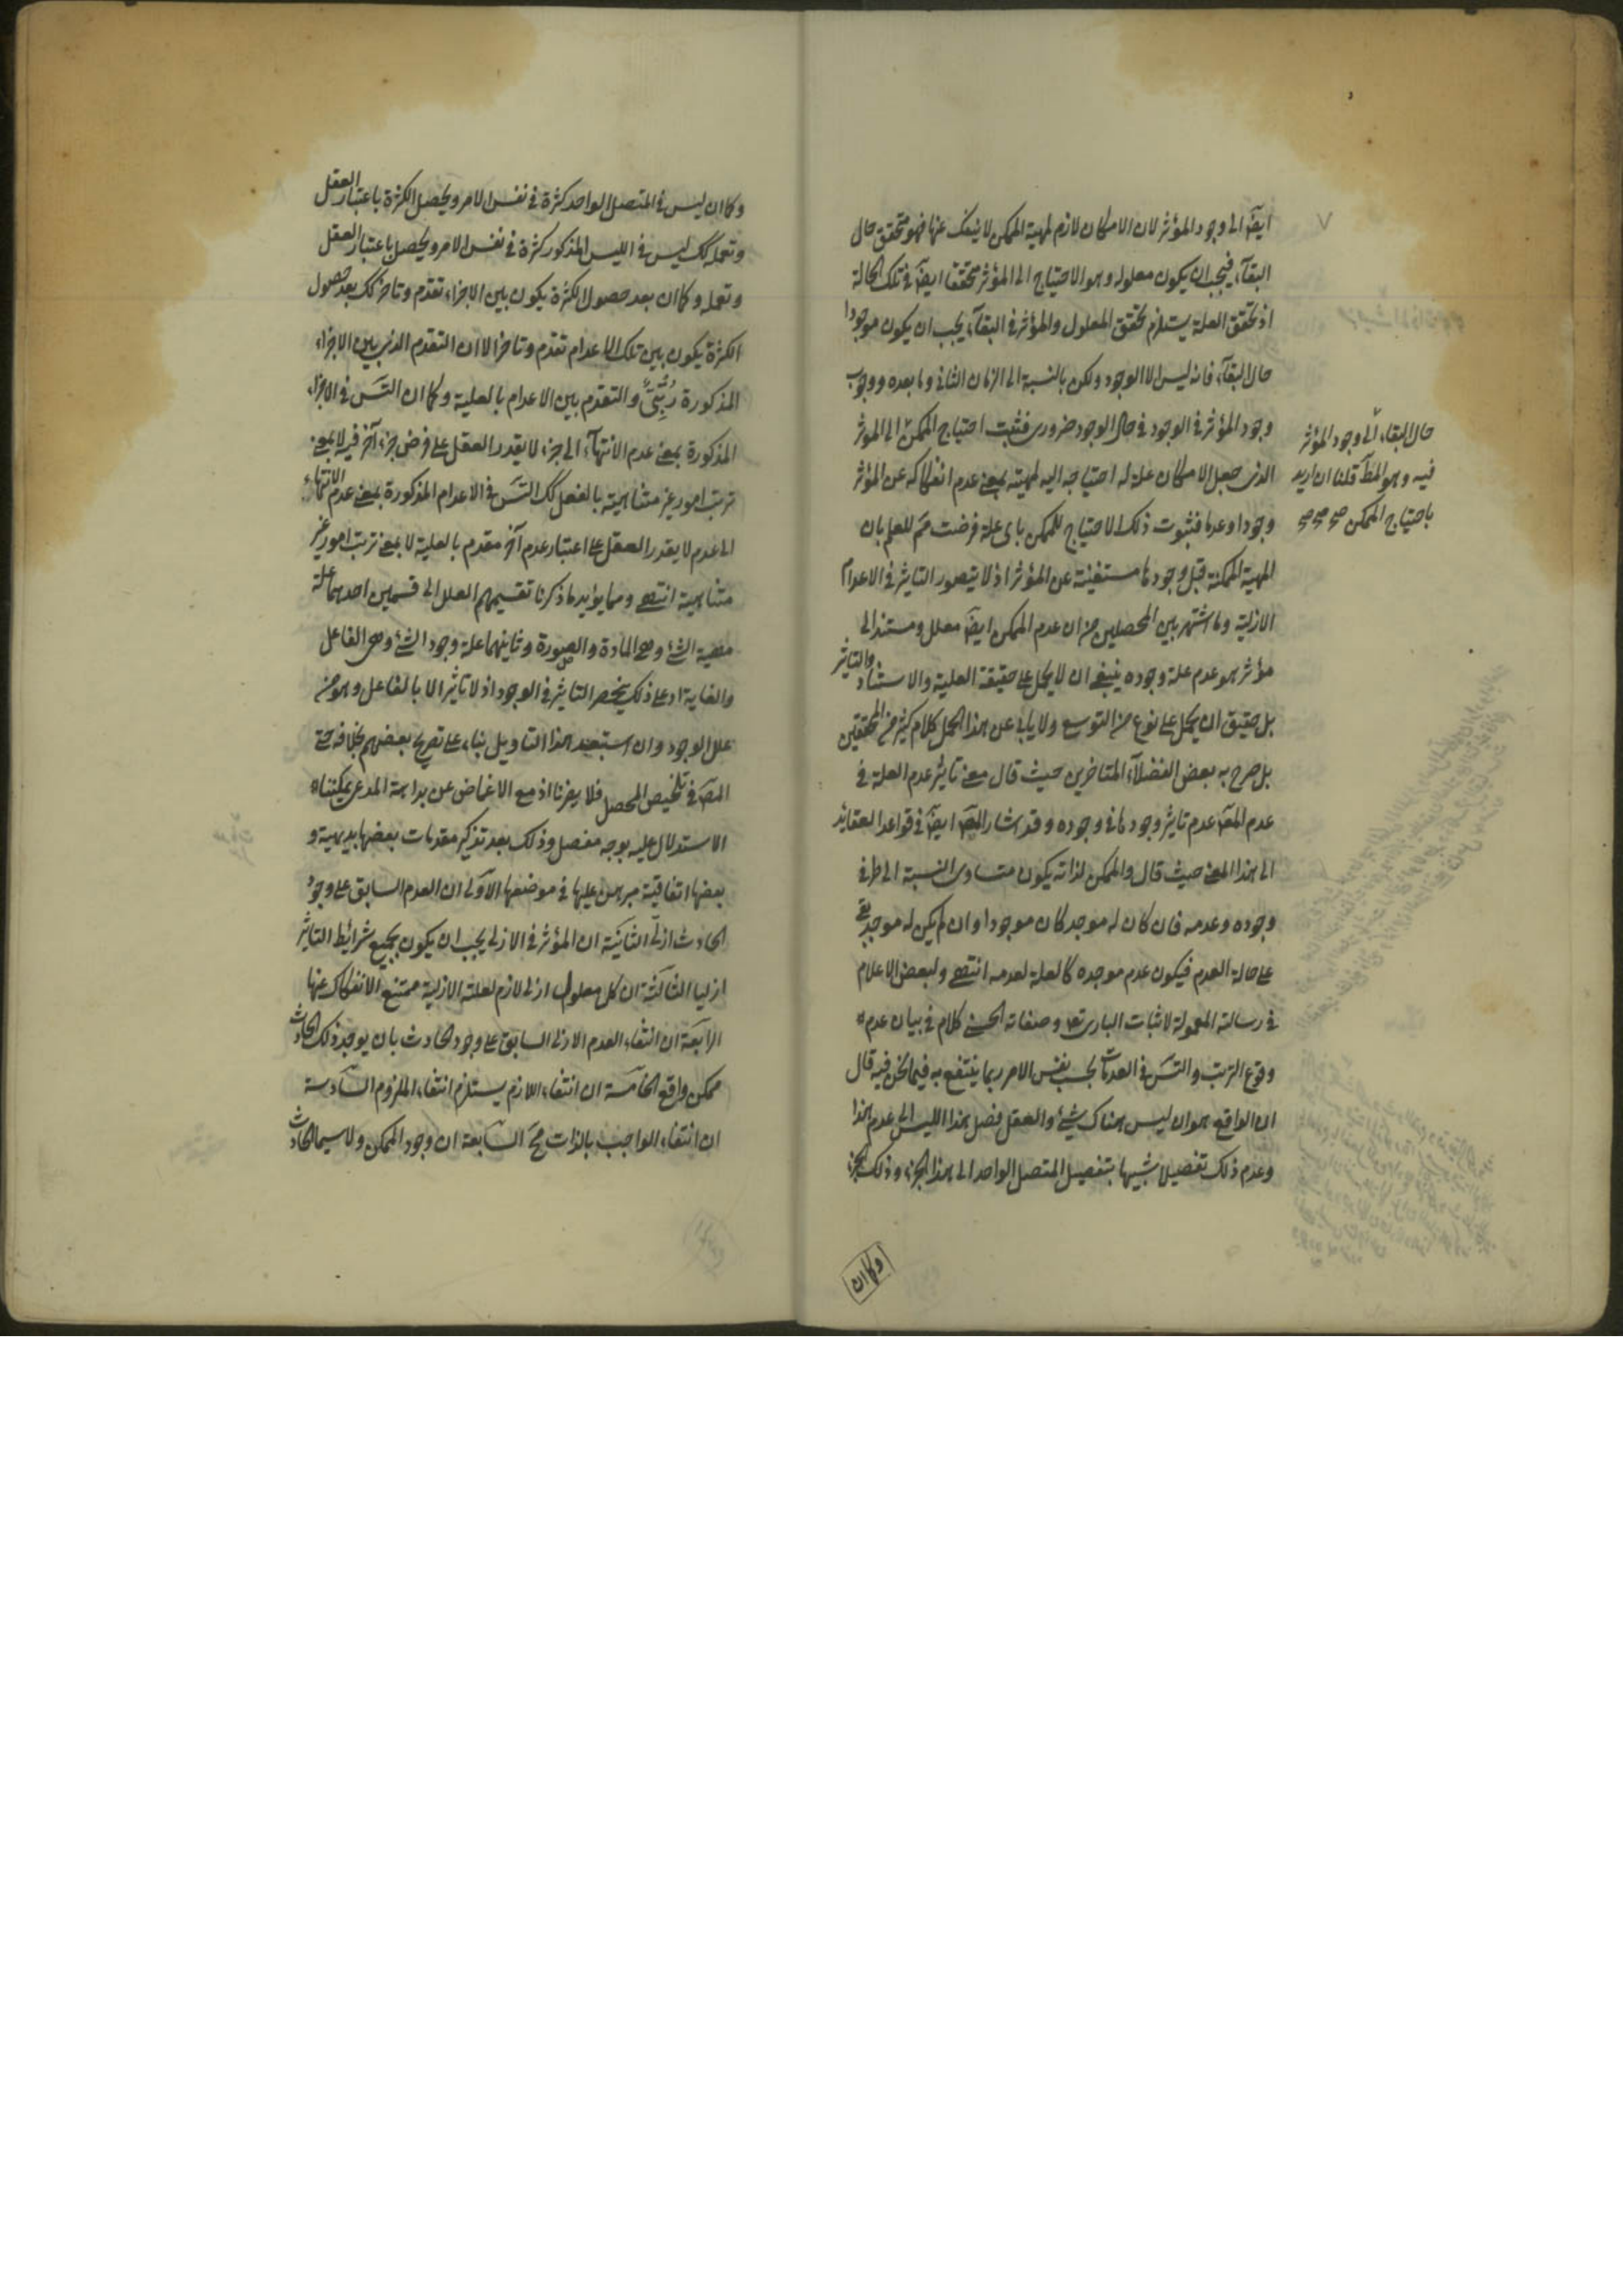 ايضا الى وجود المؤثر لان الامكان لازم لمهية الممكن لا ينفك عنها فهو متحقق حال
البقآء فيجب ان يكون معلوله وهو الاحتياج الى المؤثر متحققا ايضا فى تلك الحالة
اذ تحقق العلة يستلزم تحقق المعلول والمؤثر فى البقآء يجب ان يكون موجودا
حال البقآء فانه ليس الا الوجود ولكن بالنسبة الى الزمان الثانى وما بعده ووجوب
وجود المؤثر فى الوجود فى حال الوجود ضرورى فثبت احتياج الممكن الى المؤثر
حال البقاء الى وجود المؤثر
فيه وهو المط قلنا ان اريد
باحتياج الممكن صح صح صح
الذى جعل الامكان علة له احتياجه اليه لمهيته بمعنى عدم انفكاكه عن المؤثر
وجودا وعدما فثبوت ذلك الاحتياج للممكن باى علة فرضت مم للعلم بان
المهية الممكنة قبل وجودها مستغنية عن المؤثر اذ لا يتصور التاثير فى الاعدام
الازلية وما اشتهر بين المحصلين من ان عدم الممكن ايضا معلل ومستند الى
مؤثر هو عدم علة وجوده ينبغى ان لا يحمل على حقيقة العلية والاستناد والتاثير
بل حقيق ان يحمل على نوع من التوسع ولا يابى عن هذا الحمل كلام كثير من المحققين
بل صرح به بعض الفضلآء المتاخرين حيث قال معنى تاثير عدم العلة فى
عدم المعلول عدم تاثير وجودها فى وجوده وقد اشار المص ايضا فى قواعد العقائد
الى هذا المعنى حيث قال والممكن لذاته يكون متساوى النسبة الى طرفى
وجوده وعدمه فان كان له موجد كان موجودا وان لم يكن له موجد بقى
على حالة العدم فيكون عدم موجده كالعلة لعدمه انتهى ولبعض الاعلام
فى رسالته المعمولة لاثبات البارى تعالى وصفاته الحسنى كلام فى بيان عدم
وقوع الترتب والتس فى العدمات بحسب نفس الامر ربما ينتفع به فيما نحن فيه قال
ان الواقع هو ان ليس هناك شئ والعقل فصل هذا الليس الى عدم هذا
وعدم ذلك تفصيلا شبيها بتفصيل المتصل الواحد الى هذا الجزء وذلك الجزء
وكما ان
وكما ان ليس فى المتصل الواحد كثرة فى نفس الامر ويحصل الكثرة باعتبار العقل
وتعمله كك ليس فى الليس المذكور كثرة فى نفس الامر ويحصل باعتبار العقل
وتعمله وكما ان بعد حصول الكثرة يكون بين الاجزاء تقدم وتاخر كك بعد حصول
الكثرة يكون بين تلك الاعدام تقدم وتاخر الا ان التقدم الذى بين الاجزاء
المذكورة رتبى والتقدم بين الاعدام بالعلية وكما ان التس فى الاجزاء
المذكورة بمعنى عدم الانتهآء الى جزء لا يقدر العقل على فرض جزء آخر فيه لا بمعنى
ترتب امور غير متناهية بالفعل كك التس فى الاعدام المذكورة بمعنى عدم الانتهاء
الى عدم لا يقدر العقل على اعتبار عدم آخر مقدم بالعلية لا بمعنى ترتب امور غير
متناهية انتهى ومما يؤيد ما ذكرنا تقسيمهم العلل الى قسمين احدهما علة
مهية الشئ وهى المادة والصورة وثانيهما علة وجود الشئ وهى الفاعل
والغاية اذ على ذلك ينحصر التاثير فى الوجود اذ لا تاثير الا بالفاعل وهو من
علل الوجود وان استبعد هذا التاويل بناء على تصريح بعضهم بخلافه حتى
المص فى تلخيص المحصل فلا يضرنا اذ مع الاغماض عن بداهة المدعى يمكننا
الاستدلال عليه بوجه مفصل وذلك بعد تذكير مقدمات بعضها بديهية و
بعضها اتفاقية مبرهن عليها فى موضعها الاولى ان العدم السابق على وجود
الحادث ازلى الثانية ان المؤثر فى الازلى يجب ان يكون بجميع شرائط التاثير
ازليا الثالثة ان كل معلول ازلى لازم لعلته الازلية ممتنع الانفكاك عنها
الرابعة ان انتفاء العدم الازلى السابق على وجود الحادث بان يوجد ذلك الحادث
ممكن واقع الخامسة ان انتفاء اللازم يستلزم انتفاء الملزوم السادسة
ان انتفاء الواجب بالذات مح السابعة ان وجود الممكن ولا سيما الحادث